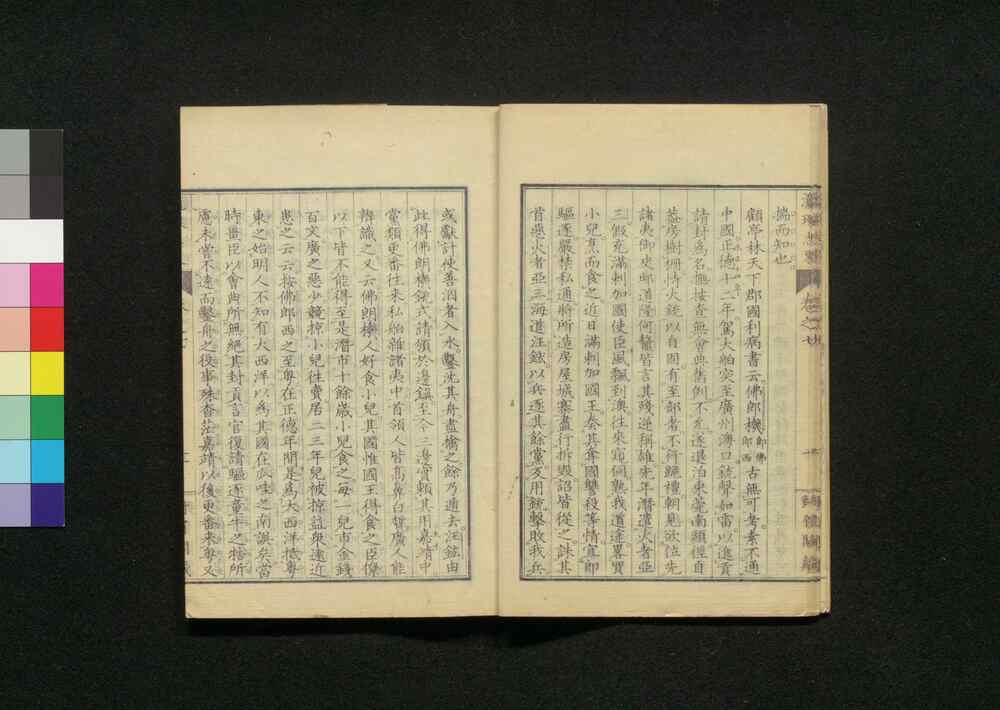 揣而知也
顧亭林天下郡國利病書云佛郎機即佛郎西古無可考素不通
中國正德十二年駕大舶突至廣州澳口銃聲如雷以進貢
請封爲名無按查無會典舊例不允遂退泊東莞南頭徑自
蓋房樹柵恃火銃以自固有至部者不行跪禮朝見欲位先
諸夷御史邱道隆何鰲皆言其殘逆稱雄先年潛遣火者亞
三假充滿剌加國使臣風飄到澳往來窺伺熟我道途畧買
小兒烹而食之近日滿剌加國王奏其奪國讐殺等情宜即
驅逐嚴禁私通將所造房屋城寨盡行拆毀詔皆從之誅其
首惡火者亞三海道汪鋐以兵逐其餘黨又用銃擊敗我兵
或獻計使善泅者入水鑿沈其舟盡擒之餘乃遁去汪鋐由
此得佛朗機銃式請頒於邊鎭至今三邊實賴其用嘉靖中
黨類更番往來私舶雜諸夷中首領人皆高鼻白皙廣人能
辨識之又云佛朗機人好食小兒其國惟國王得食之臣僚
以下皆不能得至是潛市十餘歲小兒食之每一兒市金錢
百文廣之惡少競掠小兒往賣居二三年兒被掠益衆遠近
患之云云按佛郎西之至粵在正德年間是爲大西洋抵粵
東之始明人不知有大西洋以爲其國在爪哇之南誤矣當
時疆臣以會典所無絕其封貢言官復請驅逐童牛之牿所
慮未嘗不遠而鑿舟之役事殊杳茫嘉靖以後更番來粵又